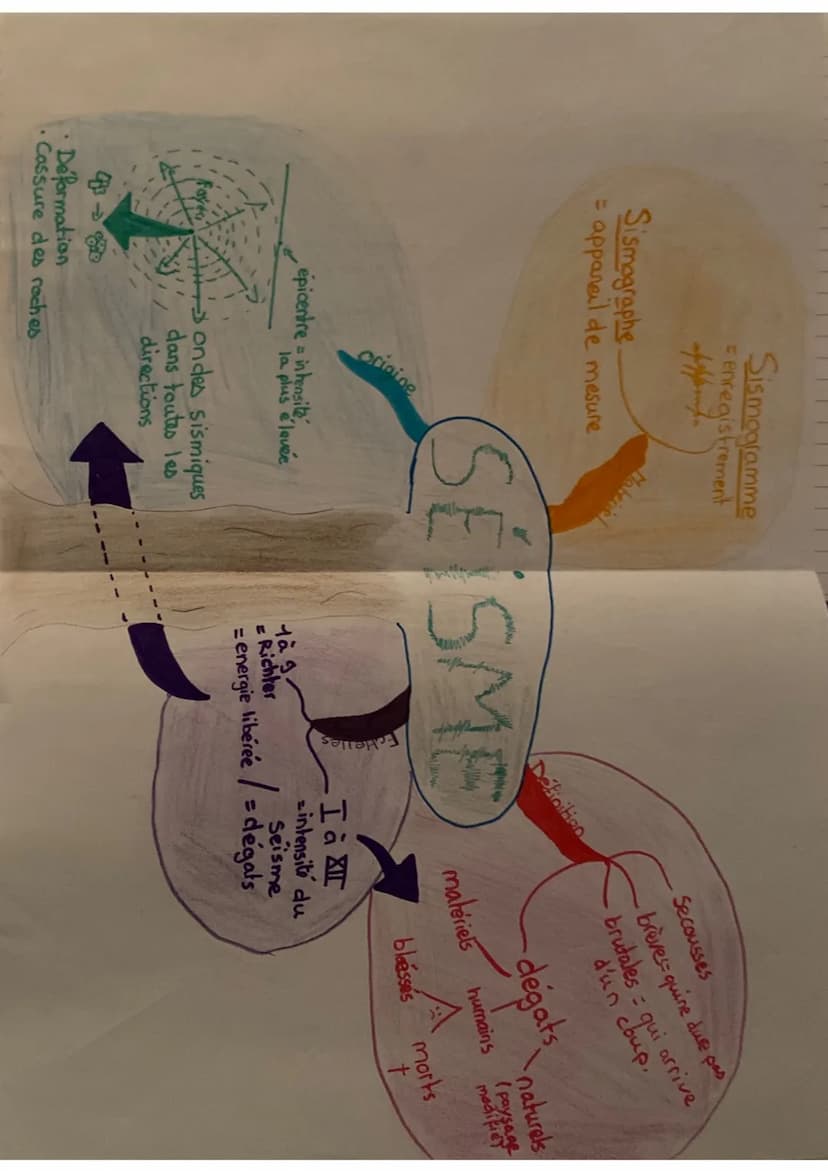 SÉISME
Définition
Secousses
brèves = qui ne dure pas
brutales = qui arrive
d'un coup.
dégats
matériels
humains
naturels
(paysage
modifié)
blessés
morts
Matériel
Sismogramme
= enregistrement
Sismographe
= appareil de mesure
Origine
épicentre = intensité
la plus élevée
Foyer
ondes sismiques
dans toutes les
directions
• Déformation
• Cassure des roches
Echelles
I à XII
= intensité du
séisme
= dégats
1 à 9
= Richter
= energie libérée /